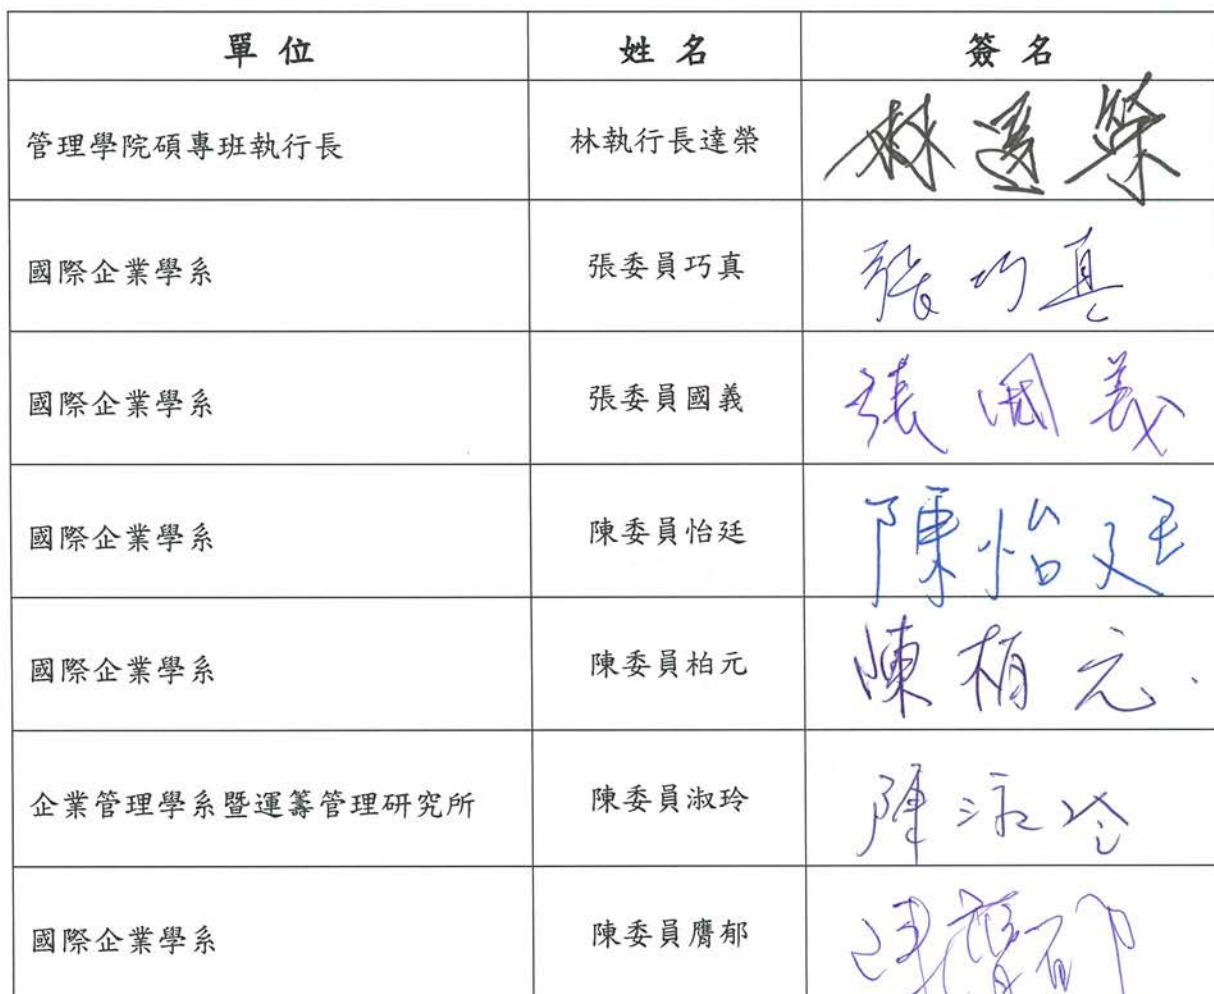 單位 姓名 簽名
管理學院碩專班執行長 林執行長達榮 林達榮
國際企業學系 張委員巧真 張巧真
國際企業學系 張委員國義 張國義
國際企業學系 陳委員怡廷 陳怡廷
國際企業學系 陳委員柏元 陳柏元
企業管理學系暨運籌管理研究所 陳委員淑玲 陳淑玲
國際企業學系 陳委員膺郁 陳膺郁